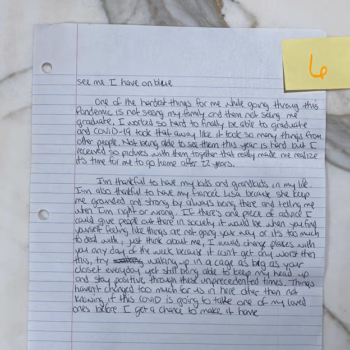 6
see me I have on blue
One of the hardest things for me while going through this
Pandemic is not seeing my family and them not seeing me
graduate. I worked so hard to finally be able to graduate
and COVID-19 took that away like it took so many things from
other people. Not being able to see them this year is hard but I
received so pictures with them together that really made me realize
its time for me to go home after 12 years.
I'm thankful to have my kids and grandkids in my life.
I'm also thankful to have my fiance Lisa because she keep
me grounded and strong by always being there and telling me
when I'm right or wrong. If there's one piece of advice I
could give people out there in society it would be when you find
yourself feeling like things are not going your way or it's too much
to deal with, just think about me, I would change places with
you any day of the week because it can't get any worst then
this, try waking up in a cage as big as your
closet everyday yet still being able to keep my head up
and stay positive through these unprecedented times. Things
haven't changed too much for us in here other than not
knowing if this COVID is going to take one of my loved
ones before I get a chance to make it home